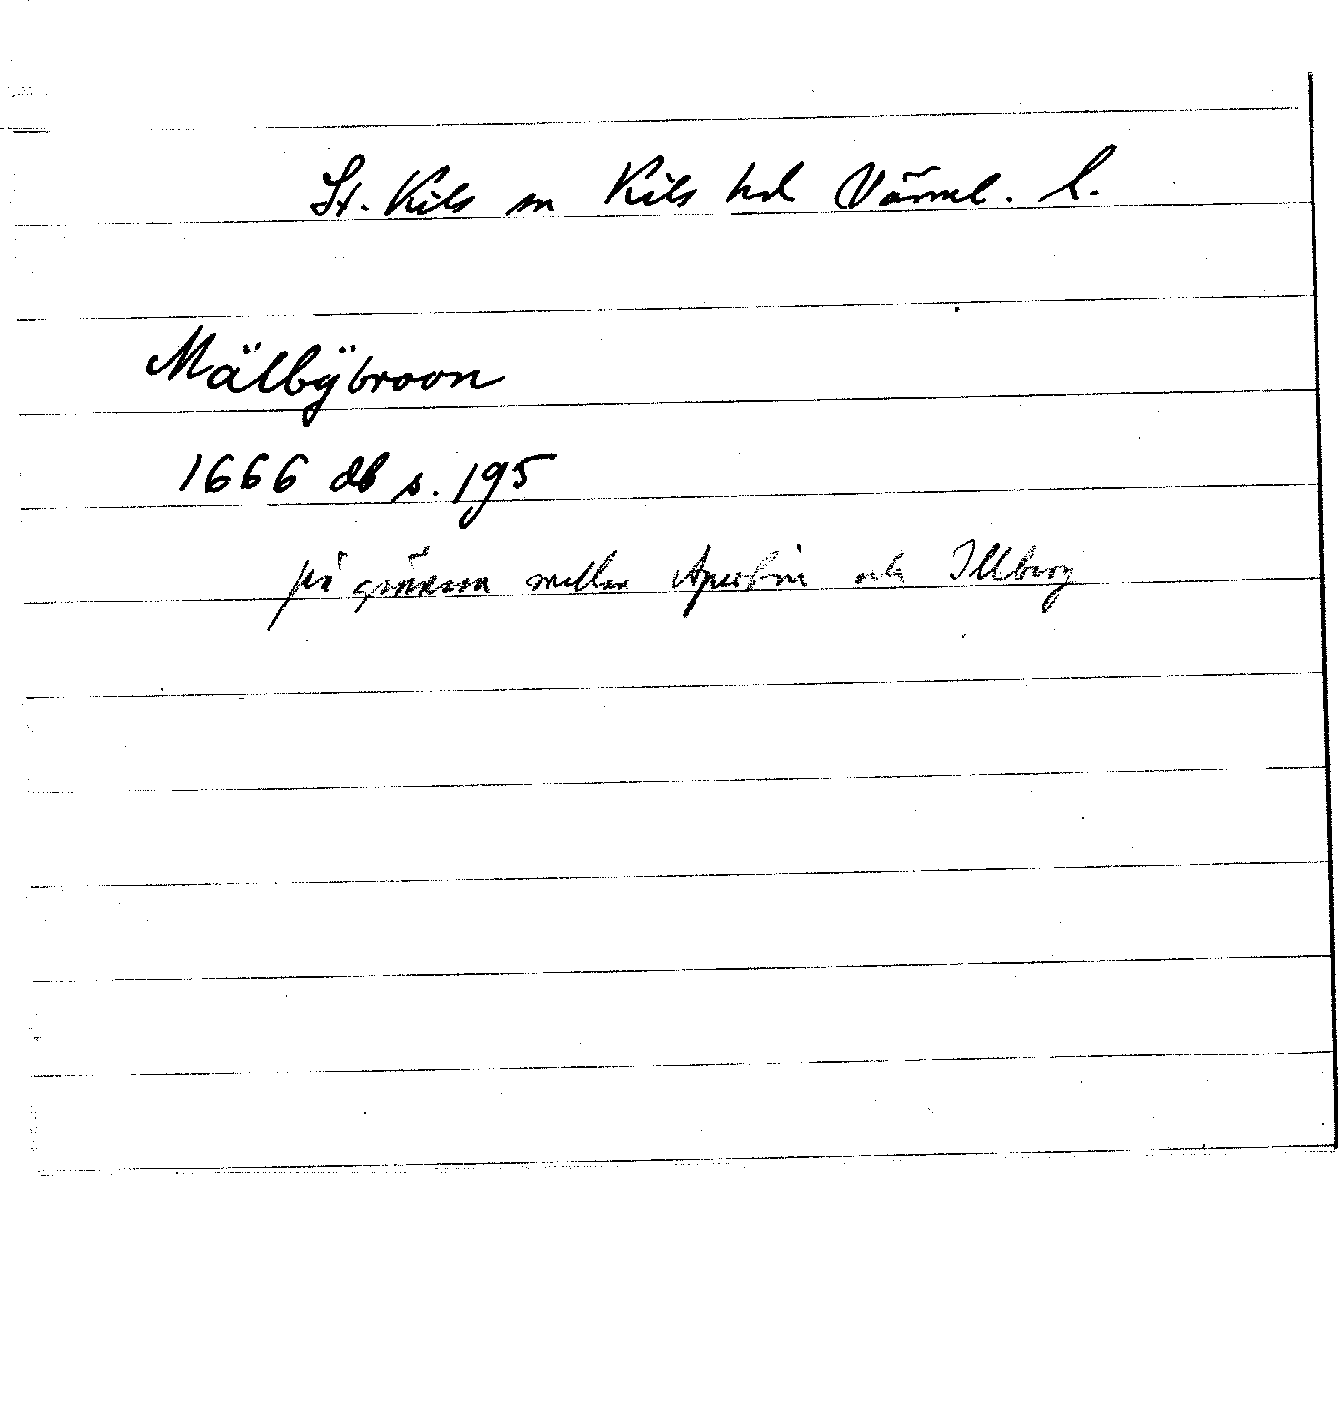 St. Kils sn Kils hd Värml. l.
Mälbÿbroon
1666 db s. 195
på gränsen mellan Apertin och Illberg